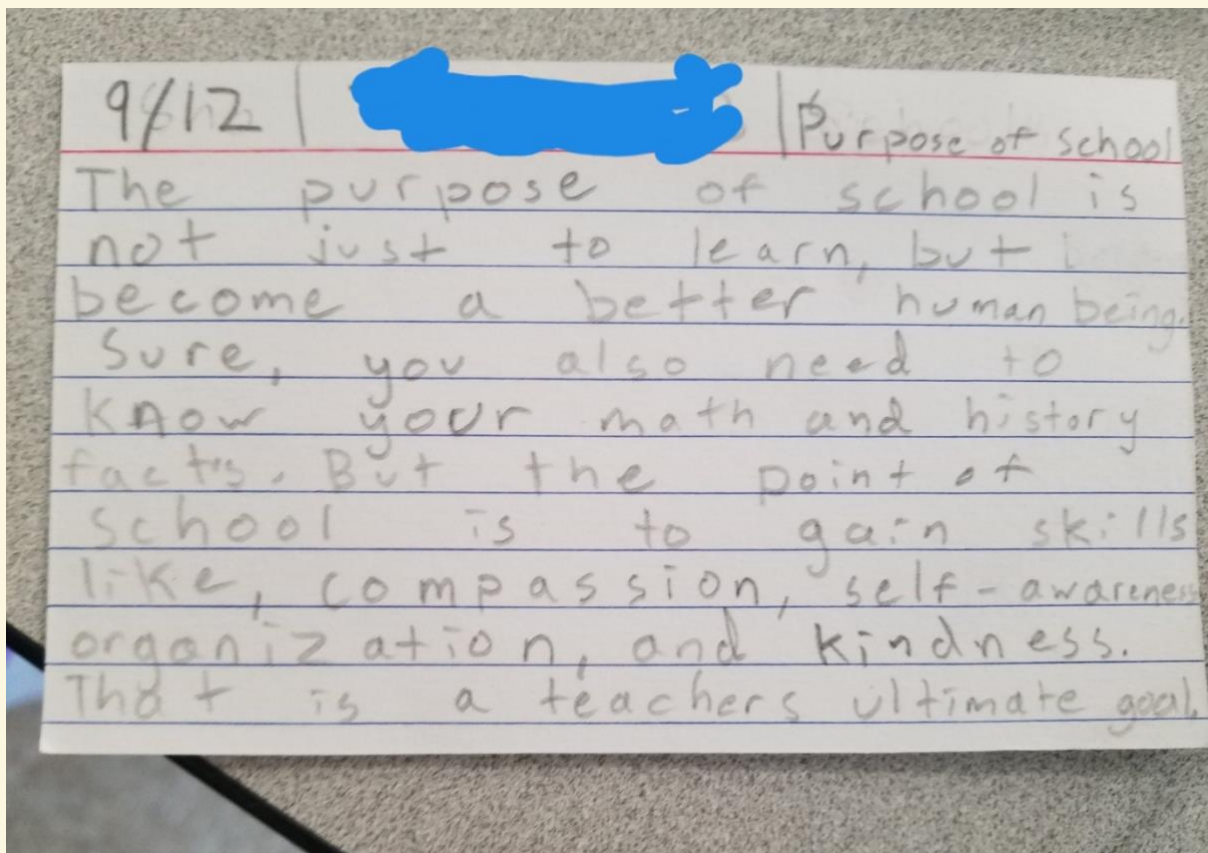 9/12 | | Purpose of school
The purpose of school is
not just to learn, but
become a better human being.
Sure, you also need to
know your math and history
facts. But the point of
school is to gain skills
like, compassion, self-awareness
organization, and kindness.
That is a teachers ultimate goal.